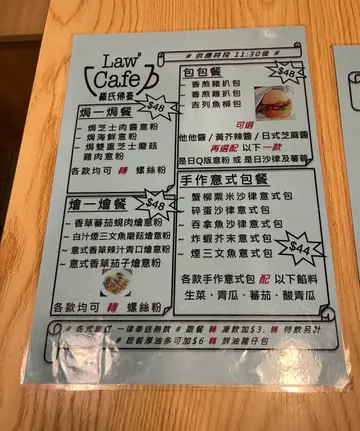 Law's
Cafe
羅氏佛喜
# 供應時段 11:30後 #
焗一焗餐
$48
~ 焗芝士肉醬意粉
~ 焗海鮮意粉
~ 焗雙重芝士磨菇
雞肉意粉
各款均可 轉 螺絲粉
燴一燴餐
$48
~ 香草蕃茄蜆肉燴意粉
~ 白汁煙三文魚蘑菇燴意粉
~ 意式香草辣汁青口燴意粉
~ 意式香草蕃茄仔燴意粉
各款均可 轉 螺絲粉
包包餐
$48
~ 香煎豬扒包
~ 香煎雞扒包
~ 吉列魚柳包
可選
他他醬 / 黃芥辣醬 / 日式芝麻醬
再選配 以下 一款
是日Q版意粉 或 是日沙律及薯蓉
手作意式包餐
~ 蟹柳粟米沙律意式包
~ 碎蛋沙律意式包
~ 吞拿魚沙律意式包
~ 炸蝦芥末意式包
~ 煙三文魚意式包
$44
各款手作意式包 配 以下餡料
生菜、青瓜、蕃茄、酸青瓜
# 各式套餐 一律奉送熱飲 # 跟餐 轉 凍飲加$3. 轉 特飲另計
# 跟餐厚油多可加$6 轉 鮮油豬仔包